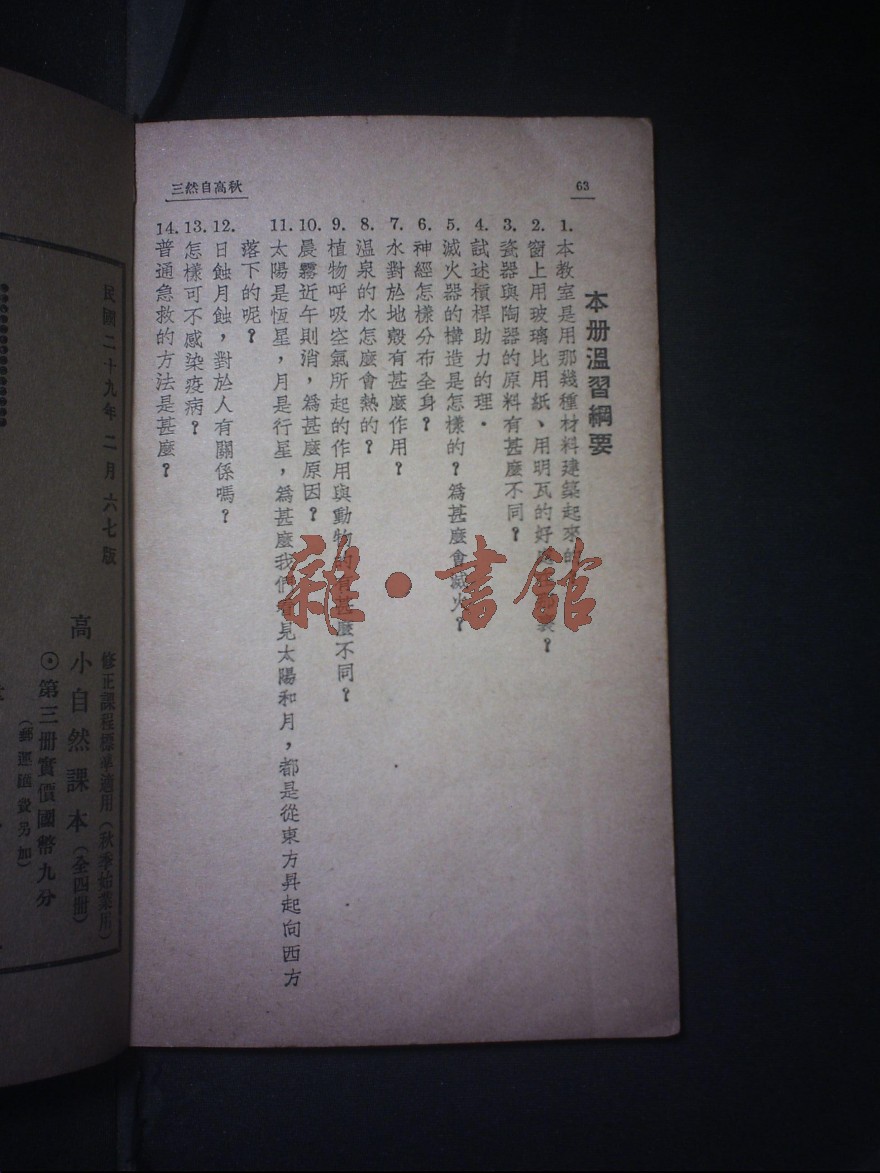 63
秋高自然三
本册溫習綱要
1. 本教室是用那幾種材料建築起來的
2. 窗上用玻璃比用紙、用明瓦的好處
3. 瓷器與陶器的原料有甚麼不同？
4. 試述槓桿助力的理．
5. 滅火器的構造是怎樣的？爲甚麼會滅火？
6. 神經怎樣分布全身？
7. 水對於地殼有甚麼作用？
8. 温泉的水怎麼會熱的？
9. 植物呼吸空氣所起的作用與動物的有甚麼不同？
10. 晨霧近午則消，爲甚麼原因？
11. 太陽是恆星，月是行星，爲甚麼我們看見太陽和月，都是從東方昇起向西方
落下的呢？
12. 日蝕月蝕，對於人有關係嗎？
13. 怎樣可不感染疫病？
14. 普通急救的方法是甚麼？
雜·書館
民國二十九年二月六七版
修正課程標準適用（秋季始業用）
高小自然課本（全四冊）
⊙第三冊實價國幣九分
（郵運匯費另加）